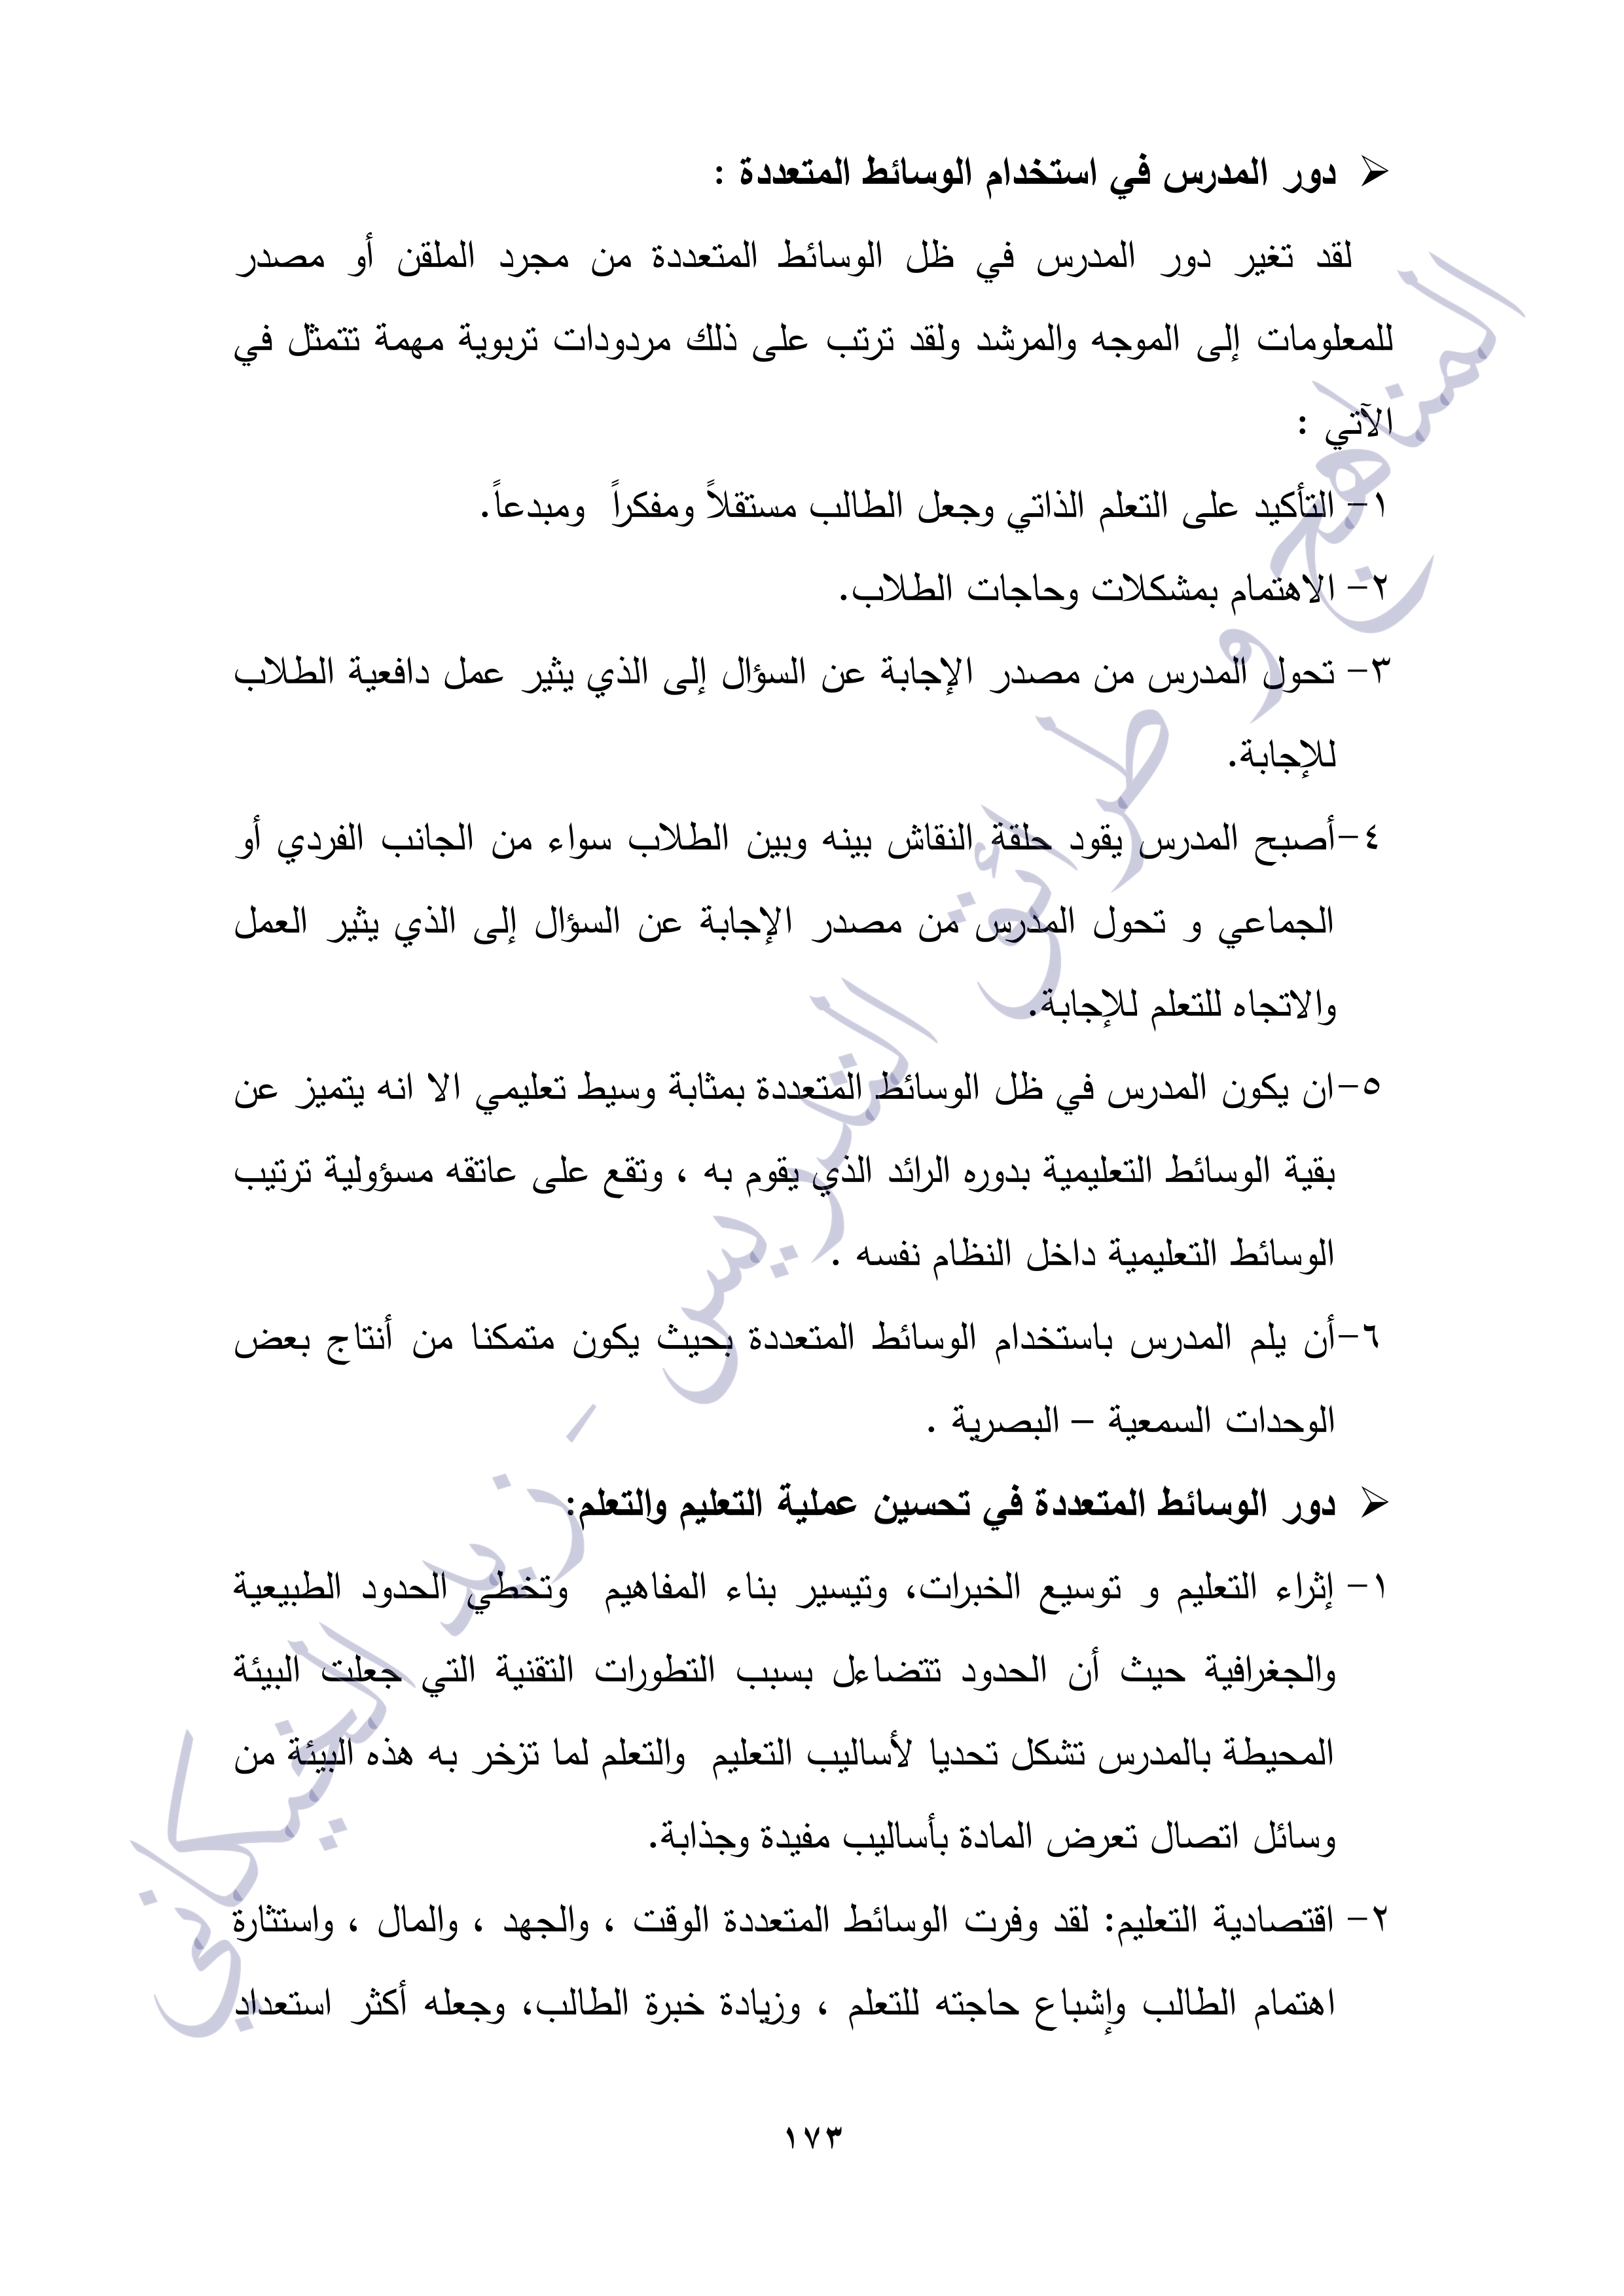 ➢ دور المدرس في استخدام الوسائط المتعددة :
لقد تغير دور المدرس في ظل الوسائط المتعددة من مجرد الملقن أو مصدر
للمعلومات إلى الموجه والمرشد ولقد ترتب على ذلك مردودات تربوية مهمة تتمثل في
الآتي :
١- التأكيد على التعلم الذاتي وجعل الطالب مستقلاً ومفكراً ومبدعاً.
٢- الاهتمام بمشكلات وحاجات الطلاب.
٣- تحول المدرس من مصدر الإجابة عن السؤال إلى الذي يثير عمل دافعية الطلاب
للإجابة.
٤-أصبح المدرس يقود حلقة النقاش بينه وبين الطلاب سواء من الجانب الفردي أو
الجماعي و تحول المدرس من مصدر الإجابة عن السؤال إلى الذي يثير العمل
والاتجاه للتعلم للإجابة.
٥-ان يكون المدرس في ظل الوسائط المتعددة بمثابة وسيط تعليمي الا انه يتميز عن
بقية الوسائط التعليمية بدوره الرائد الذي يقوم به ، وتقع على عاتقه مسؤولية ترتيب
الوسائط التعليمية داخل النظام نفسه .
٦-أن يلم المدرس باستخدام الوسائط المتعددة بحيث يكون متمكنا من أنتاج بعض
الوحدات السمعية – البصرية .
➢ دور الوسائط المتعددة في تحسين عملية التعليم والتعلم:
١- إثراء التعليم و توسيع الخبرات، وتيسير بناء المفاهيم وتخطي الحدود الطبيعية
والجغرافية حيث أن الحدود تتضاءل بسبب التطورات التقنية التي جعلت البيئة
المحيطة بالمدرس تشكل تحديا لأساليب التعليم والتعلم لما تزخر به هذه البيئة من
وسائل اتصال تعرض المادة بأساليب مفيدة وجذابة.
٢- اقتصادية التعليم: لقد وفرت الوسائط المتعددة الوقت ، والجهد ، والمال ، واستثارة
اهتمام الطالب وإشباع حاجته للتعلم ، وزيادة خبرة الطالب، وجعله أكثر استعداد
١٧٣
المناهج و طرائق التدريس - زيد الخيكاني